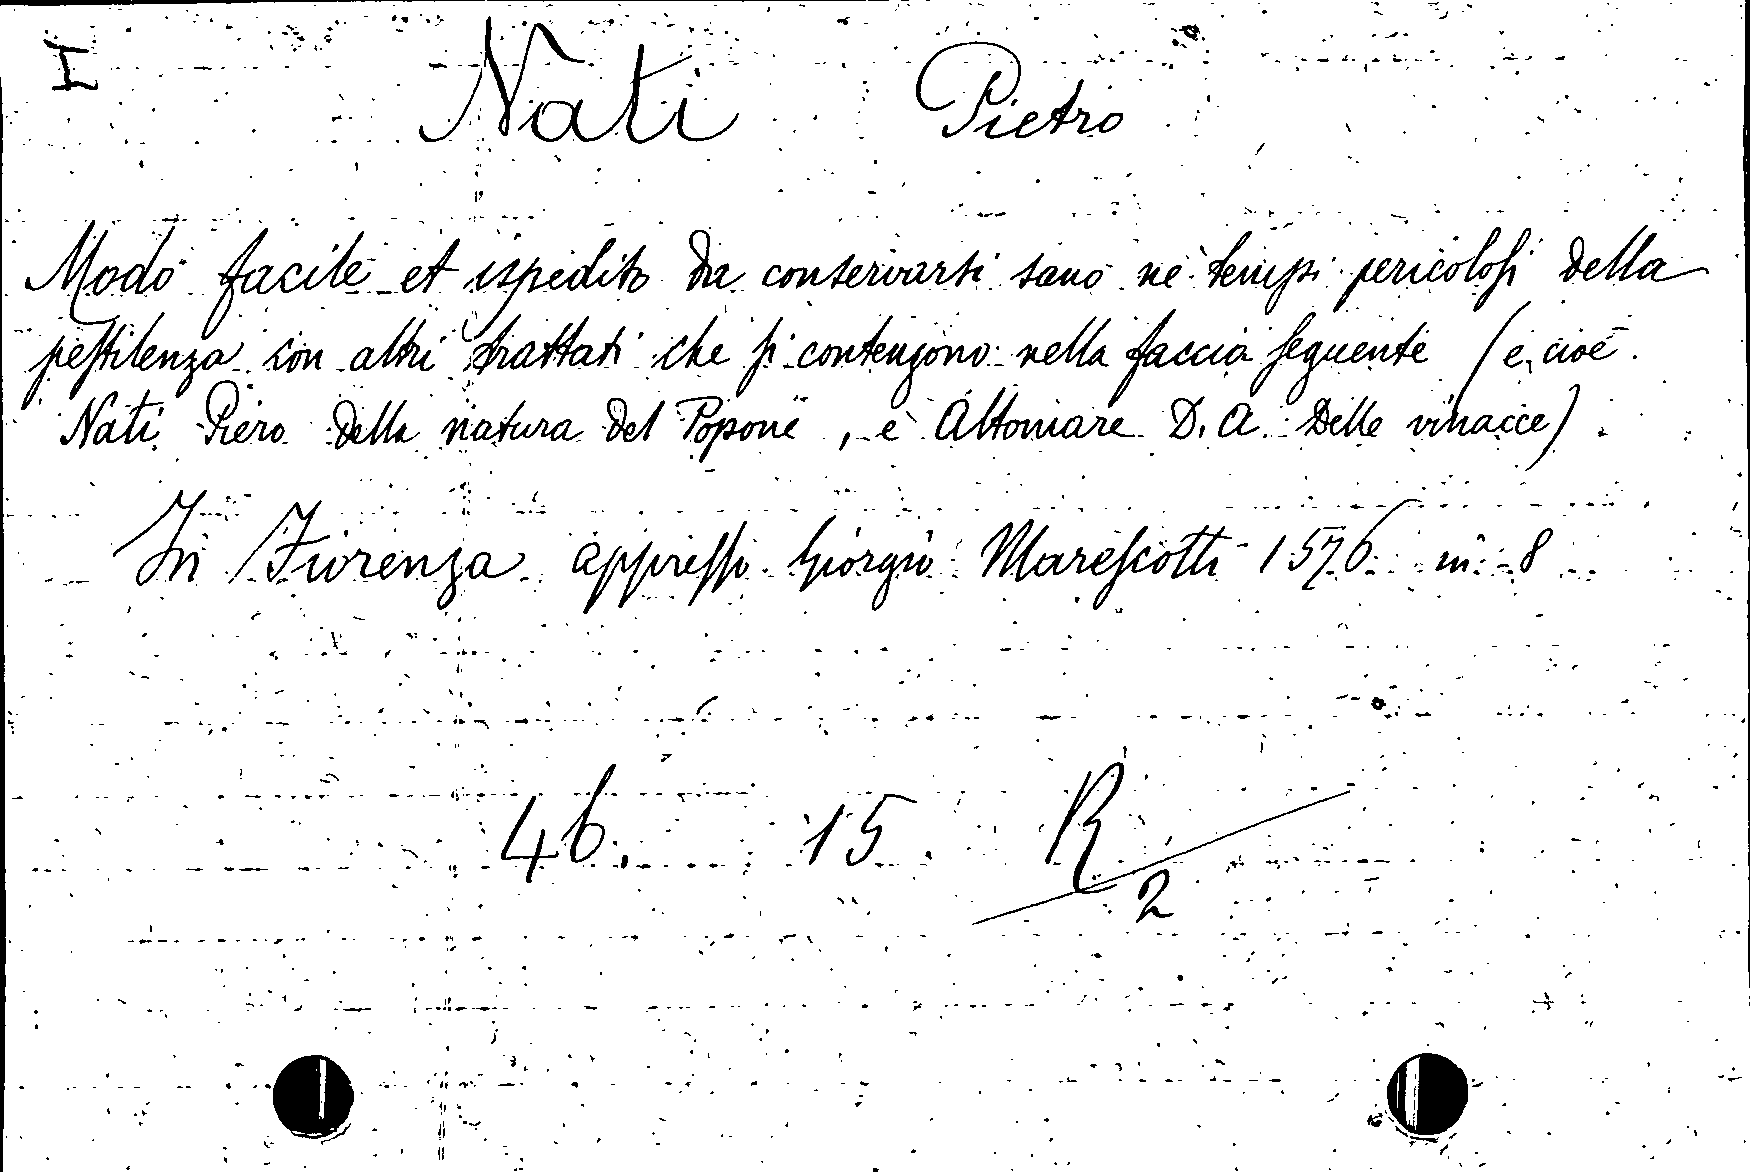 I
Nati Pietro
Modo facile et ispedito da conservarsi sano ne tempi pericolosi della
pestilenza con altri trattati che si contengono nella faccia seguente (e cioè
Nati Piero della natura del Popone, e Altomare D. A. Delle vinacce).
In Fiorenza appresso Giorgio Marescotti 1576 in 8
46. 15. R
2